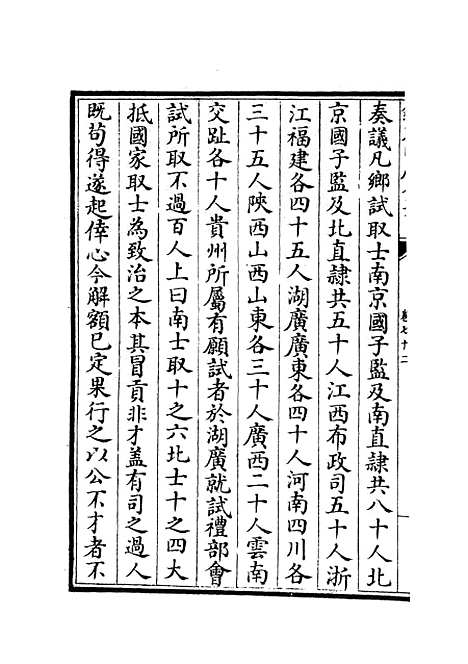 奏議凡鄉試取士南京國子監及南直隸共八十人北
京國子監及北直隸共五十人江西布政司五十人浙
江福建各四十五人湖廣廣東各四十人河南四川各
三十五人陜西山西山東各三十人廣西二十人雲南
交趾各十人貴州所屬有願試者於湖廣就試禮部會
試所取不過百人上曰南士取十之六北士十之四大
抵國家取士為致治之本其冒貢非才蓋有司之過人
既苟得遂起倖心今解額已定果行之以公不才者不